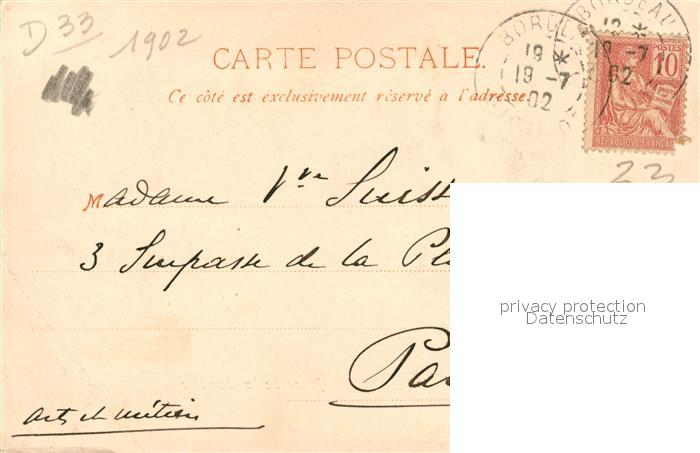 D 33
1902
CARTE POSTALE.
Ce côté est exclusivement réservé à l'adresse.
BORDEAU
19
19 -7
02
BORDEAU
-7
02
POSTES
10
RÉPUBLIQUE FRANÇAI
23
Madame Vve Suiss
3 Impasse de la Pl
Pa
Arts et Métiers
privacy protection
Datenschutz